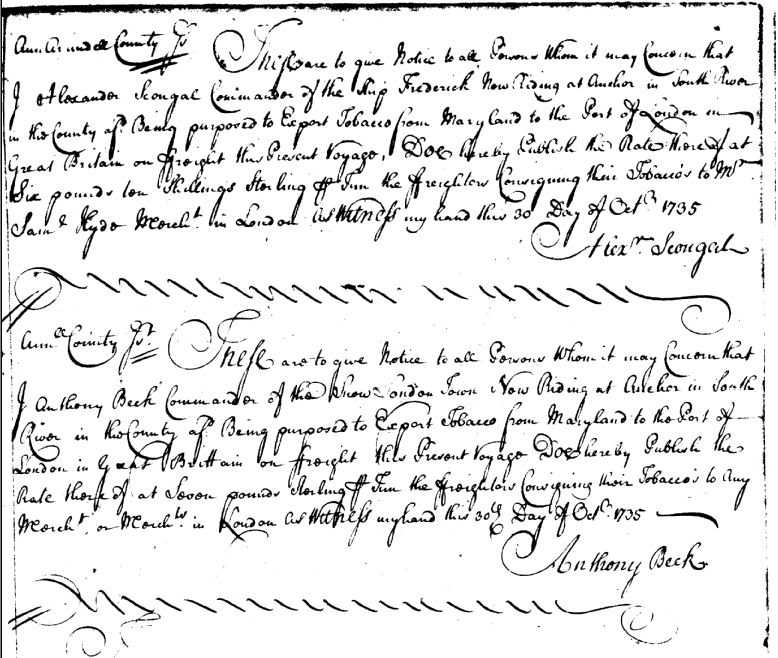 Ann Arundell County Ss These are to give Notice to all Persons Whom it may Concern that
I Alexander Scougal Commander of the Ship Frederick Now Riding at Anchor in South River
in the County afd. Being purposed to Export Tobacco from Maryland to the Port of London in
Great Britain on ffreight this Present Voyage, Doe hereby Publish the Rate thereof at
Six pounds ten Shillings Sterling Tunn the ffreighters Consigning their Tobacco's to Mr.
Saml. Hyde Mercht. in London As Witness my hand this 30 Day of Octr. 1735
Alexr. Scougall
Annll County These are to give Notice to all Persons Whom it may Concern that
I Anthony Beck Commander of the Snow London Town Now Riding at Anchor in South
River in the County afd. Being purposed to Export Tobacco from Maryland to the Port of
London in Great Brittain on ffreight this Present Voyage Doe hereby Publish the
Rate thereof at Seven pounds Sterling Tunn the ffreighters Consigning their Tobacco's to Any
Mercht. or Merchts. in London As Witness my hand this 30th Day of Octr. 1735
Anthony Beck